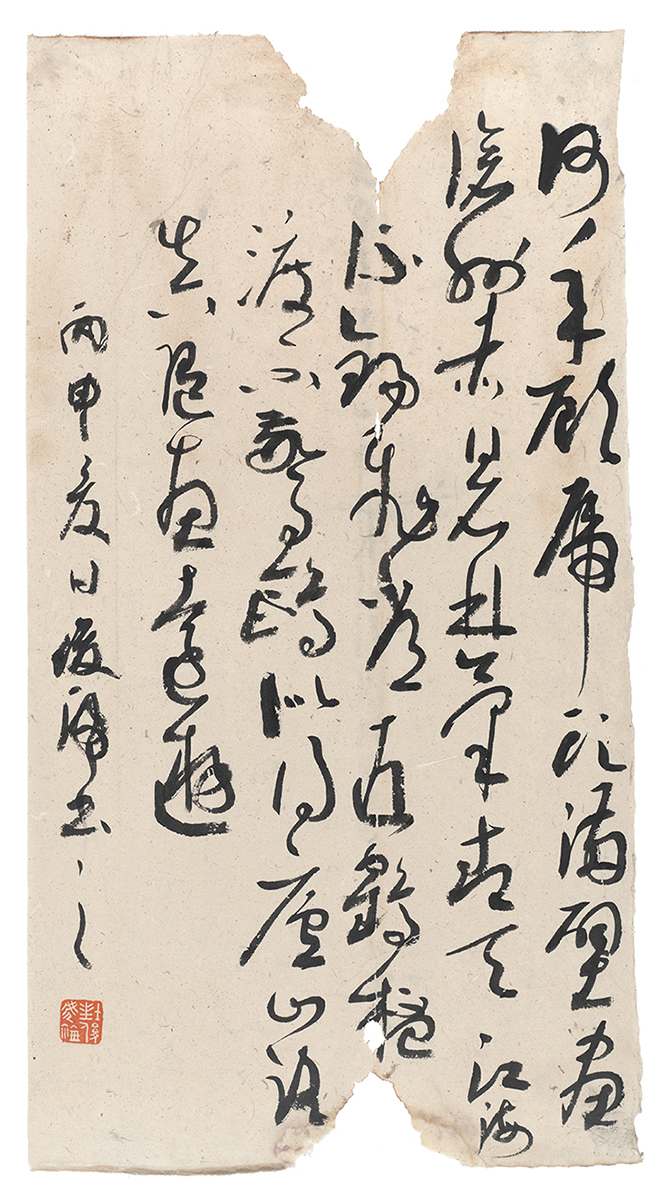 何年顧虎頭滿壁畫
滄洲赤日石林氣青天江海
流錫飛常近鶴杯
渡不驚鷗似得廬山路
真隨惠遠遊
丙申夏日俊書之